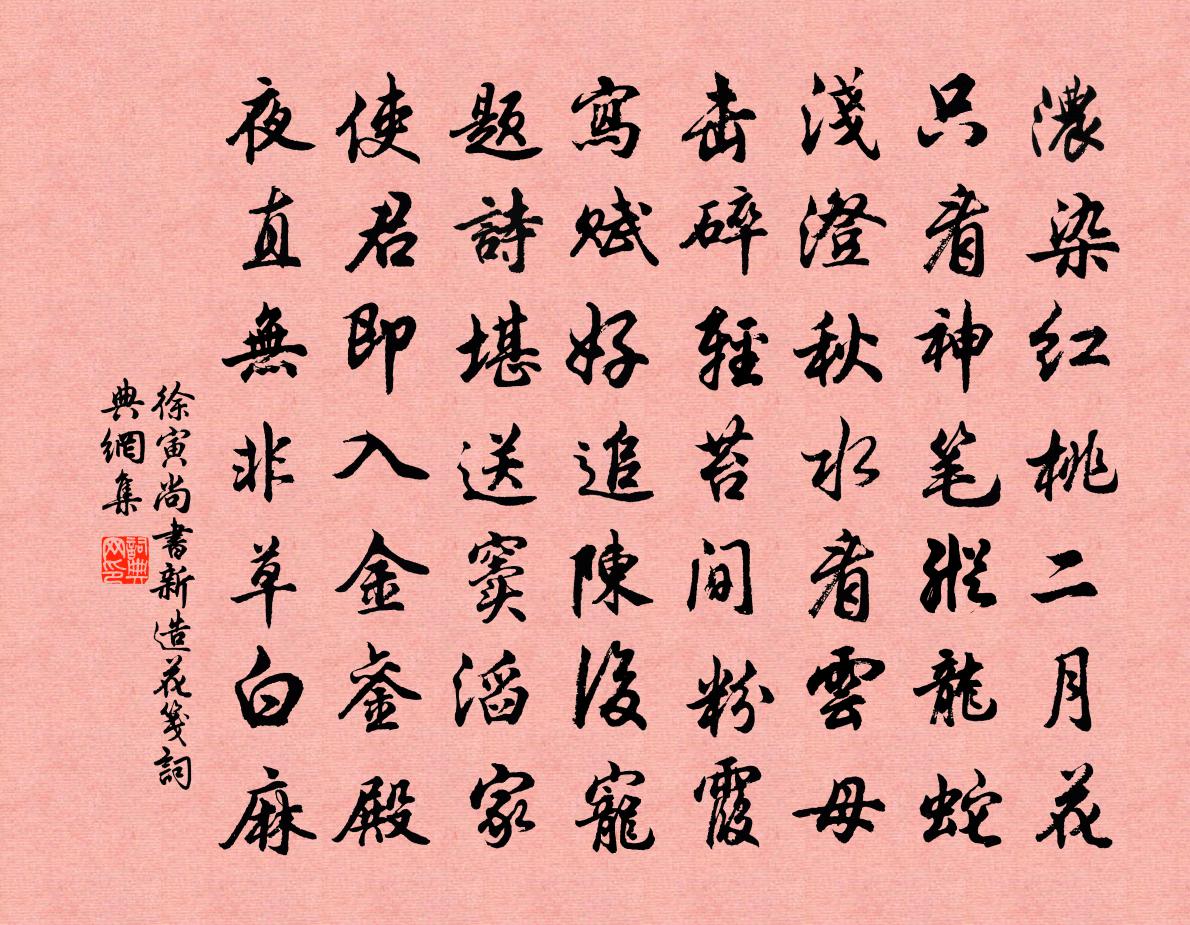 濃染红桃二月花
只看神笔縱龍蛇
淺澄秋水看雲母
击碎輕苔間粉霞
寫赋好追陳後寵
題詩堪送竇滔家
使君即入金銮殿
夜直無非草白麻
徐寅尚書新造花箋詞
典網集
詞典
网印